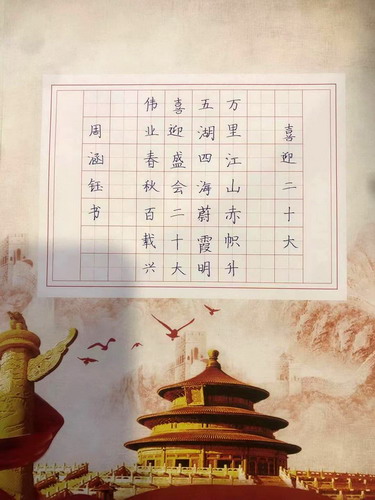 喜迎二十大
万里江山赤帜升
五湖四海蔚霞明
喜迎盛会二十大
伟业春秋百载兴
周涵钰书